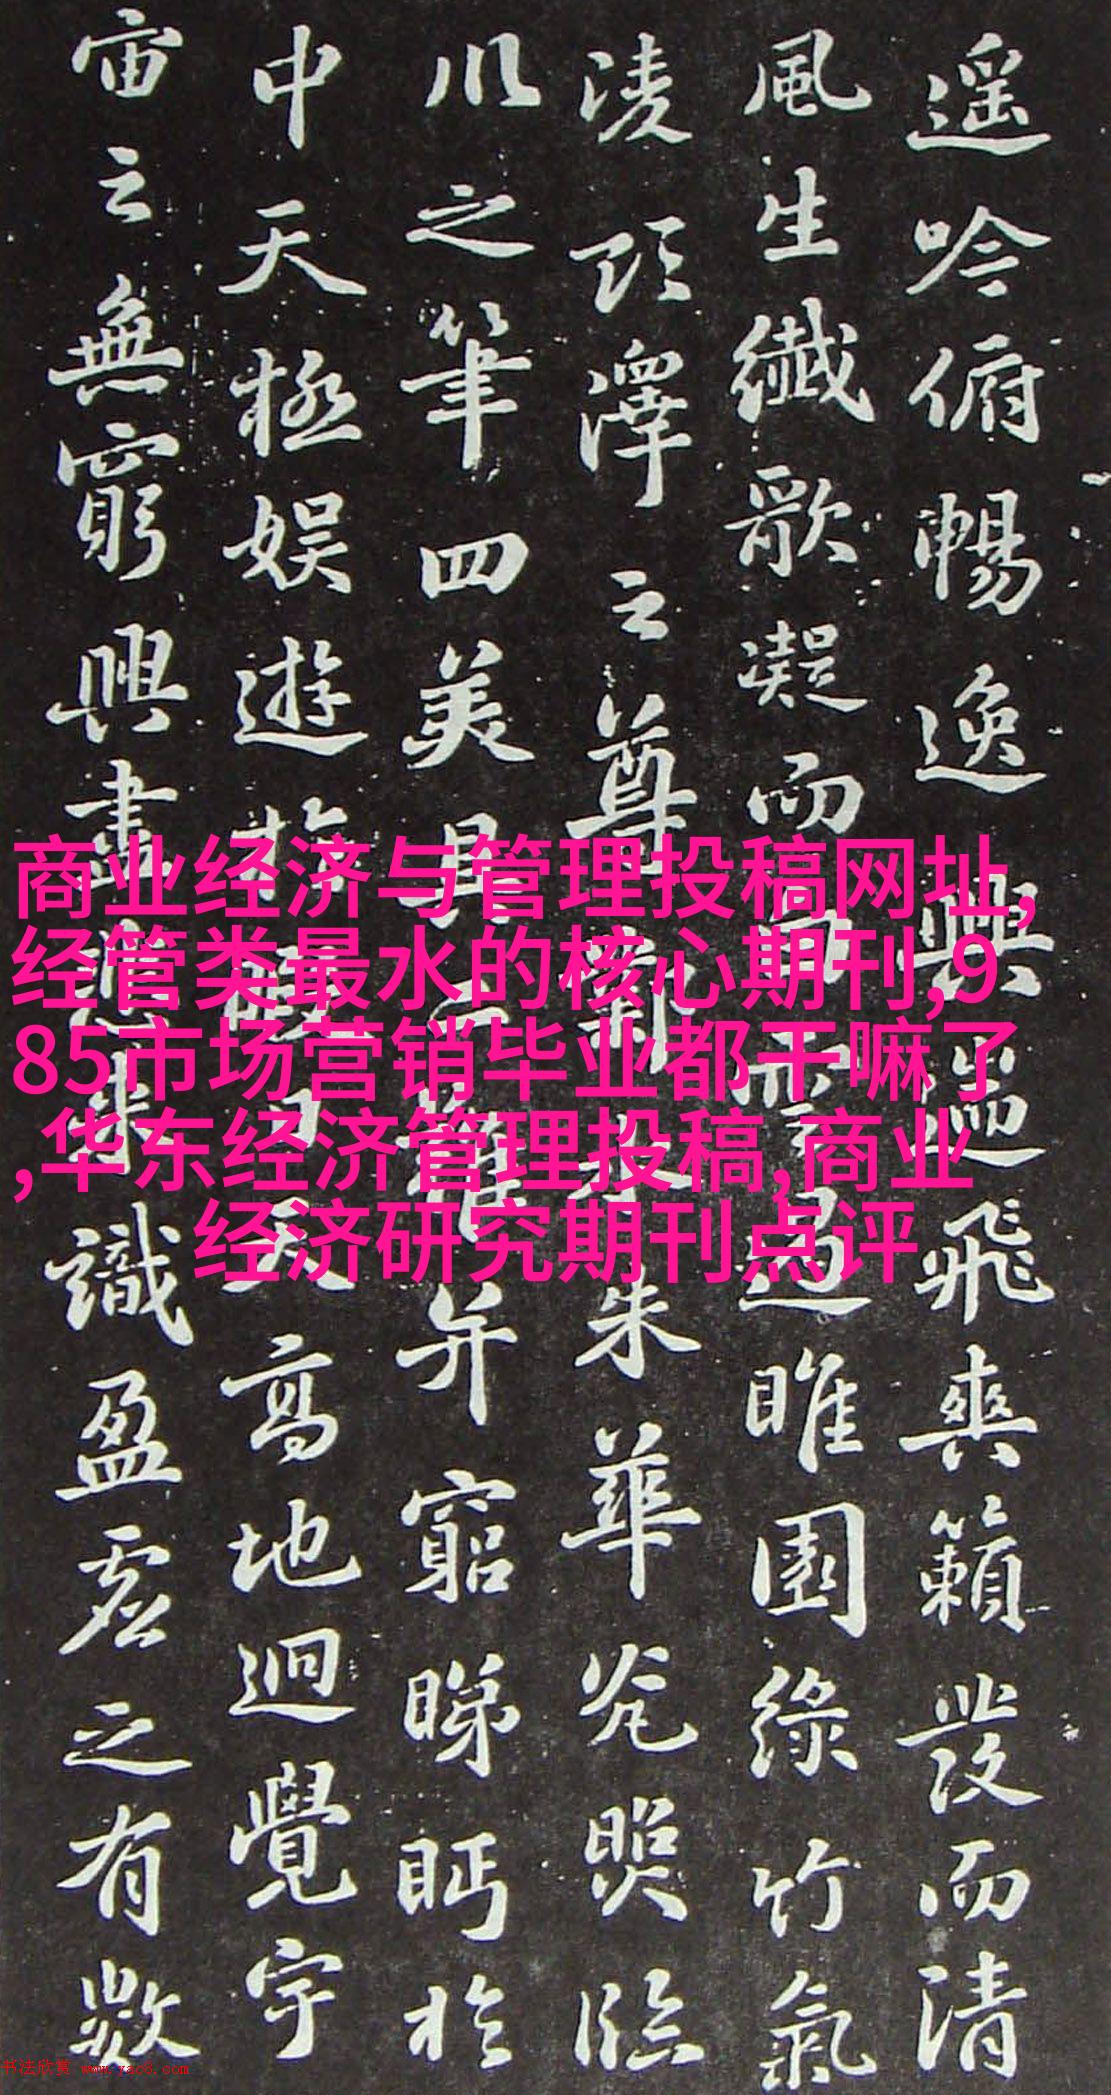 遥吟俯暢逸興遄飛爽籟發而清
風生纖歌凝而白雲遏睢園綠竹氣
凌彭澤之尊鄴水朱華光照臨
川之筆四美具二難并窮睇眄於
中天極娛遊於暇日天高地迥覺宇
宙之無窮興盡悲來識盈虛之有數
商业经济与管理投稿网址,
经管类最水的核心期刊,9
85市场营销毕业都干嘛了
,华东经济管理投稿,商业
经济研究期刊点评
书法欣赏 www.yac8.com